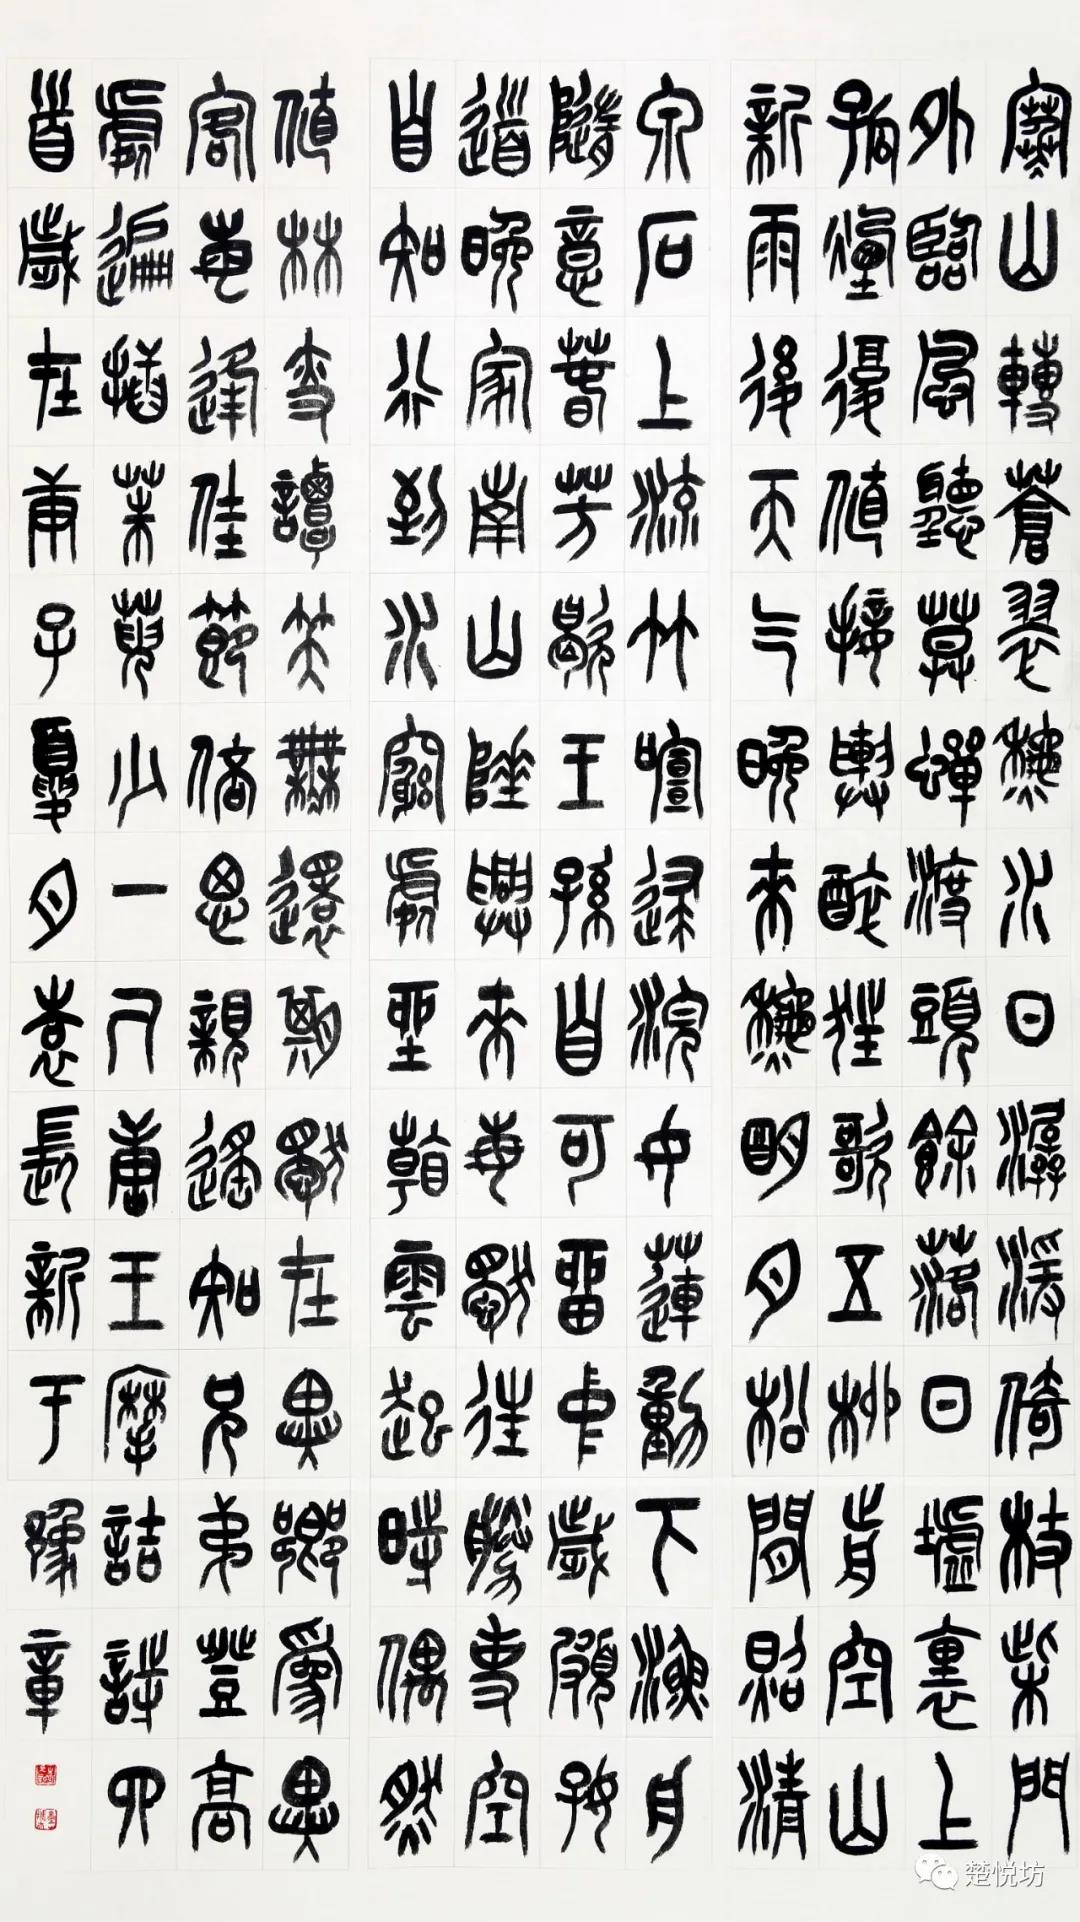 寒山轉蒼翠秋水日潺湲倚杖柴門
外臨風聽暮蟬渡頭餘落日墟裏上
孤煙復值接輿醉狂歌五柳前空山
新雨後天气晚來秋明月松間照清
泉石上流竹喧歸浣女蓮動下漁舟
隨意春芳歇王孫自可留中歲頗好
道晚家南山陲興來每獨往勝事空
自知行到水窮處坐看雲起時偶然
值林叟談笑無還期獨在異鄉為異
客每逢佳節倍思親遙知兄弟登高
處遍插茱萸少一人唐王摩詰詩四
首歲在庚子夏月袁長新于豫章
楚悦坊